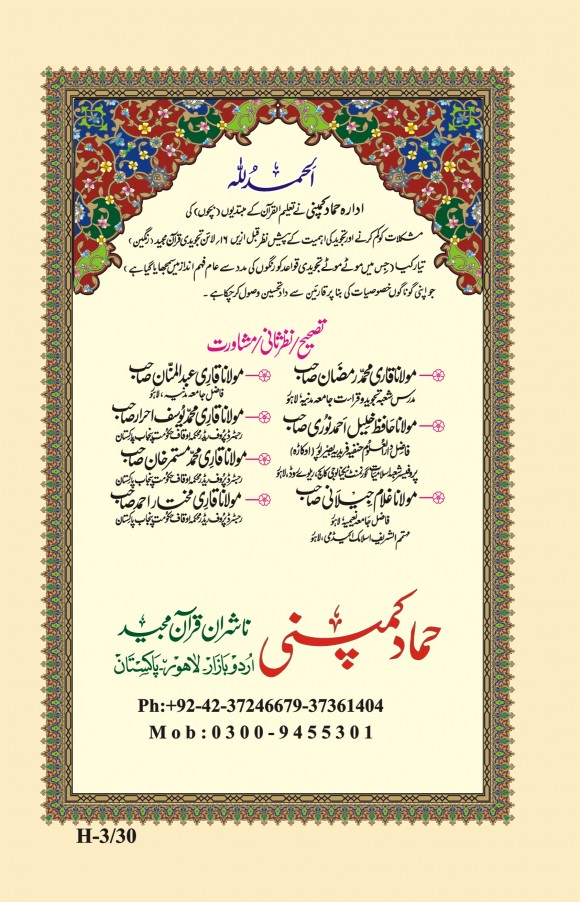 الحمد للہ
ادارہ حماد کمپنی نے تعلیم القرآن کے مبتدیوں (بچوں) کی
مشکلات کو کم کرنے اور تجوید کی اہمیت کے پیش نظر قبل ازیں ۱۶ لائن تجویدی قرآن مجید (رنگین)
تیار کیا (جس میں موٹے موٹے تجویدی قواعد کو رنگوں کی مدد سے عام فہم انداز میں سمجھایا گیا ہے)
جو اپنی گوناگوں خصوصیات کی بنا پر قارئین سے داد تحسین وصول کر چکا ہے۔
تصحیح/نظرثانی/مشاورت
مولانا قاری محمد رمضان صاحب
مدرس شعبہ تجوید و قراءت جامعہ مدنیہ لاہور
مولانا حافظ خلیل احمد نوری صاحب
فاضل دارالعلوم حنفیہ فریدیہ بصیر پور (اوکاڑہ)
پروفیسر شعبہ اسلامیات گورنمنٹ ٹیکنالوجی کالج، ریلوے روڈ، لاہور
مولانا غلام جیلانی صاحب
فاضل جامعہ نعیمیہ لاہور
مہتمم الشریف اسلامک اکیڈمی، لاہور
مولانا قاری عبدالمنان صاحب
فاضل جامعہ مدنیہ، لاہور
مولانا قاری محمد یوسف احرار صاحب
رجسٹرڈ پروف ریڈر محکمہ اوقاف حکومت پنجاب پاکستان
مولانا قاری محمد مستمر خان صاحب
رجسٹرڈ پروف ریڈر محکمہ اوقاف حکومت پنجاب پاکستان
مولانا قاری مختار احمد صاحب
رجسٹرڈ پروف ریڈر محکمہ اوقاف حکومت پنجاب پاکستان
حماد کمپنی
ناشران قرآن مجید
اردو بازار۔ لاہور۔ پاکستان
Ph:+92-42-37246679-37361404
Mob:0300-9455301
H-3/30